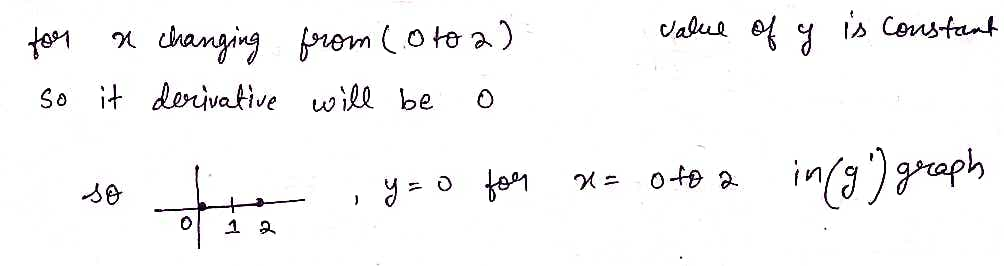 for x changing from (0 to 2) value of y is constant
so it derivative will be 0
so , y = 0 for x = 0 to 2 in (g') graph
0 1 2